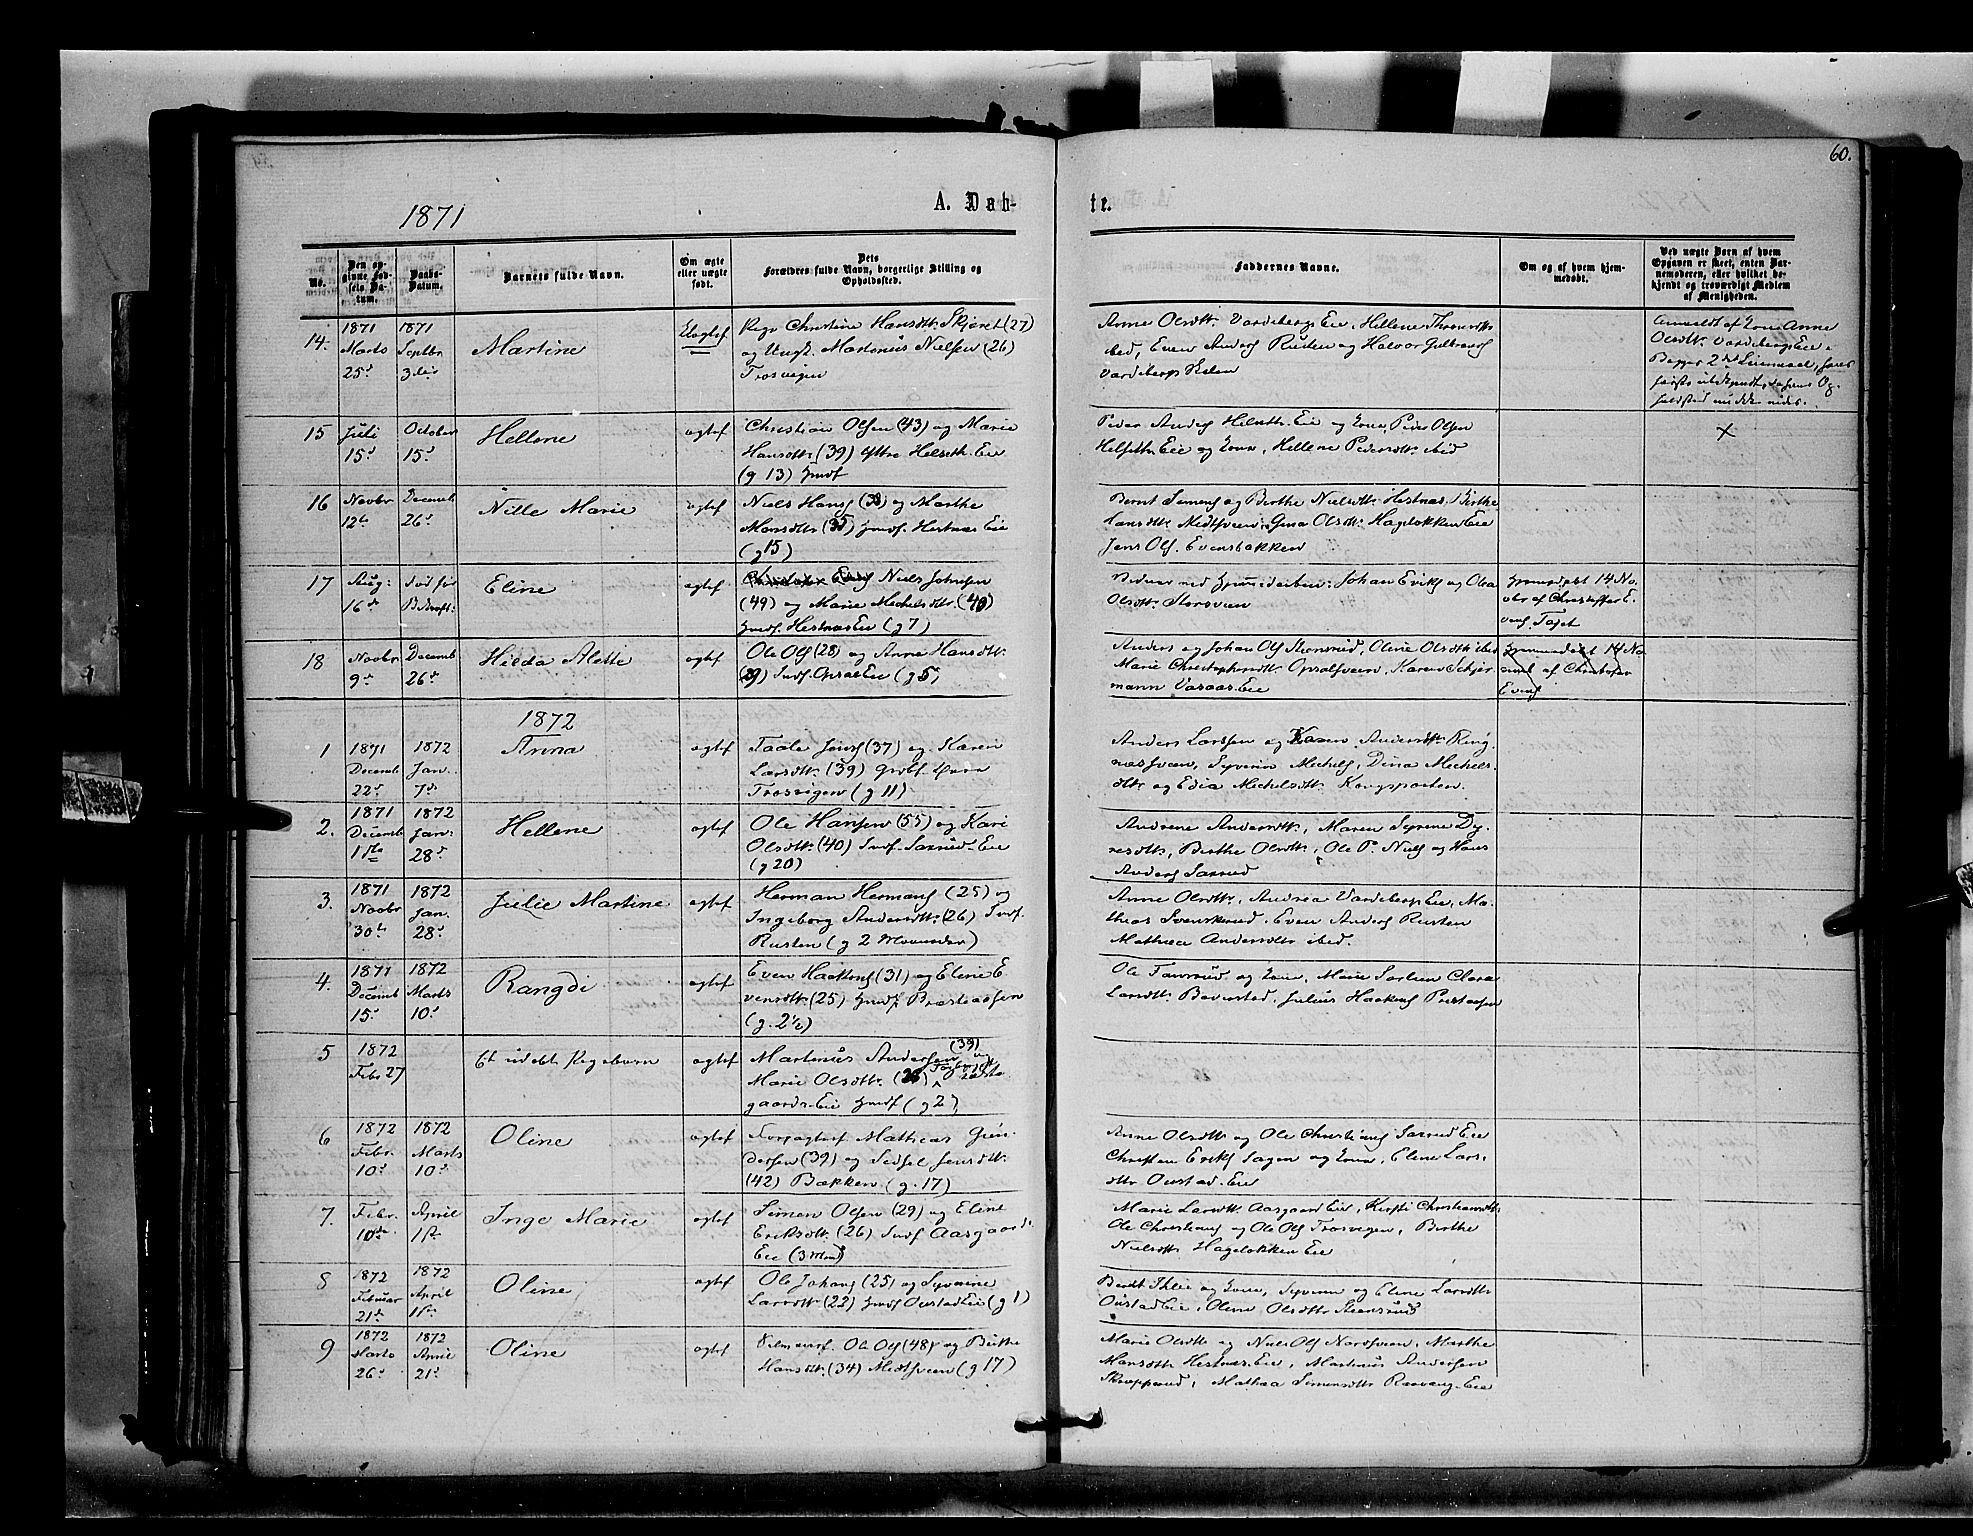 60.
1871
A. Døb-
te.
No.
Den op-
givne Fød-
sels Da-
tum.
Daabs-
Datum.
Barnets fulde Navn.
Om ægte
eller uægte
født.
Dets
Forældres fulde Navn, borgerlige Stilling og
Opholdssted.
Faddernes Navne.
Om og af hvem hjem-
medøbt.
Ved uægte Børn af hvem
Opgaven er skeet, enten Bar-
nemoderen, eller hvilket be-
kjendt og troværdigt Medlem
af Menigheden.
14.
1871
Marts
25d
1871
Septbr
3die
Martine
Uægtef
Pige Christine Hansdttr Skjæret (27)
og Ungk. Martinius Nielsen (26)
Trosvigen
Anne Olsdttr. Vardebergs Eie, Hellene
ibed, Even Anders Ruden og Halvor Gulbrands
Vardeberg
Anmeldt af Kone Anne
Olsdttr VardebergsEie.
Begges 2det Leiermaal,
15
Juli
15d
October
15d
Hellene
ægtef
Christian Olsen (43) og Marie
Hansdttr (39) Helseth-Eie
(g 13) Huusf
Peder Anders Helseth-Eie og Kone, Peder Olsen
Helseth Eie og Kone, Hellene Pedersdttr ibed
x
16
Novbr
12te
Decemb
26d
Nille Marie
ægtef
Niels Hans (38) og Marthe
Hansdttr (35) Huusf. Hestnæs Eie
(g 15)
Bernt Simens og Berthe Nielsdttr Hestnæs, Berthe
Hansdttr Midtsveen, Gina Olsdttr Hageløkken Eie
Jens Ols. Evensbakken
17
Aug:
16de
Død før
Eline
ægtef
Niels Johnsen
(49) og Marie Michelsdttr. (40)
Huusf. HestnæsEie (g 7)
Vidner ved Hjemmedaaben: Johan Eriks og Olea
Olsdttr Storsveen
Hjemmedøbt 14 No-
vbr af Christoffer E-
vens. Tajet
18
Novbr
9de
Decemb
26d
Hilda Alette
ægtef
Ole Ols (28) og Anne Hansdttr.
(29) Indf. OpsalEie (g 5)
Anders og Johan Ols Steensrud, Oline Olsdttr ibed
Marie Christophersdttr Opsalsveen, Karen
mann Vasaas-Eie
Hjemmedøbt 14 No-
af Christopher
Evens
1872
1
1871
Decemb
22d
1872
Jan.
7d
Anna
ægtef
Taale Jens (37) og Karen
Larsdttr. (39)
Trosvigen (g 11)
Anders Larssen og Karen Andersdttr Ring-
næssveen, Syverin Michels, Dina Michels-
dttr og Edia Michelsdttr Kongsparten.
2.
1871
Decemb
11te
1872
Jan.
28d
Hellene
ægtef
Ole Hansen (55) og Kari
Olsdttr (40) Indf. Saxrud-Eie
(g 20)
Andrene Andersdttr, Maren Syrene Dy-
resdttr, Berthe Olsdttr, Ole P. Niels og Hans
Anders Saxrud
3.
1871
Novbr
30te
1872
Jan.
28d
Julie Martine
ægtef
Herman Hermans (25) og
Ingeborg Andersdttr (26) Indf.
Rusten (g 2 Maaneder)
Anne Olsdttr, Andrea VardebergsEie, Ma-
thias Svenskerud, Even Anders Rusten
Mathea Andersdttr ibed.
4.
1871
Decemb
15d
1872
Marts
10d
Rangdi
ægtef
Even Haakons (31) og Elene E-
vensdttr (25) Huusf Præstaasen
(g. 2½)
Ole Tansrud og Kone, Marie Clara
Larsdttr Baverstad, Julius Haakens Præstaasen
5
1872
Febr 27
Et udøbt Pigebarn
ægtef
Martinius Andersen (39) og
Marie Olsdttr. (26)
gaards-Eie Huusf (g 2)
6
1872
Febr.
10d
1872
Marts
10d
Oline
ægtef
Forpagter Mathias Gun-
dersen (39) og Sidsel Jensdttr
(42) Bækken (g. 17)
Anne Olsdttr og Ole Christians Saxrud Eie
Christen Eriks Sagen og Kone, Elene Lars-
dttr Oustad-Eie
7.
Febr.
10de
April
1ste
Inge Marie
ægtef
Simen Olsen (29) og Eline
Eriksdttr (26) Indf Aasgaards
Eie (3 Mnd)
Marie Larsdttr Aasgaard Eie, Kirsti Christiansdttr
Ole Christians og Ole Ols Trosvigen, Berthe
Nielsdttr Hageløkken Eie
8
1872
Februar
21de
1872
April
1ste
Oline
ægtef
Ole Johans (25) og Syverine
Larsdttr (22) Huusf OustadEie (g 1)
Berdt Thlie og Kone, Syverin og Elene Larsdttr
OustadEie, Oline Olsdttr Steensrud
9
1872
Marts
26d
1872
April
21d
Oline
ægtef
Selveierf. Ole Ols (48) og Berthe
Hansdttr. (34) Midtsveen (g 17)
Marie Olsdttr og Niels Ols Nordsveen, Marthe
Hansdttr Hestnæs-Eie, Martinius Andersen
Skroppsrud, Mathea Simensdttr